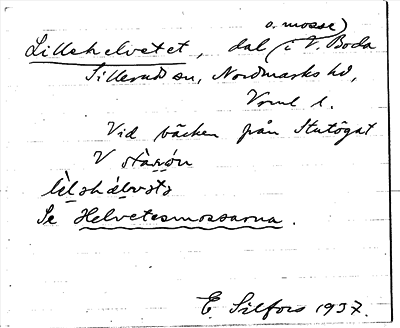 o. mosse)
Lillehelvetet, dal (i V. Boda
Sillerud sn, Nordmarks hd,
Vrml l.
Vid bäcken från Stutögat
V
Se Helvetesmossarna.
E. Silfors 1937.